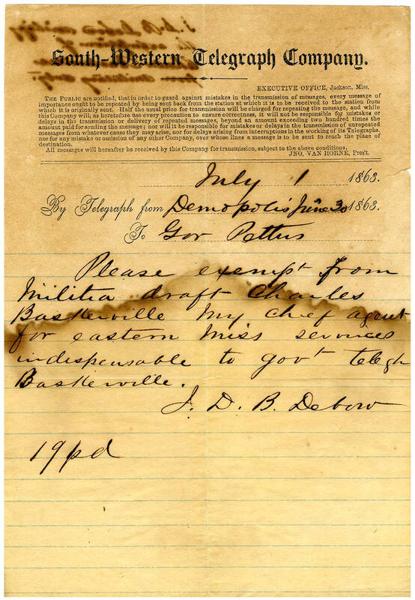 South-Western Telegraph Company.
EXECUTIVE OFFICE, Jackson, Miss.
THE PUBLIC are notified, that in order to guard against mistakes in the transmission of messages, every message of
importance ought to be repeated by being sent back from the station at which it is to be received to the station from
which it is originally sent. Half the usual price for transmission will be charged for repeating the message, and while
this Company will, as heretofore use every precaution to ensure correctness, it will not be responsible for mistakes or
delays in the transmission or delivery of repeated messages, beyond an amount exceeding two hundred times the
amount paid for sending the message; nor will it be responsible for mistakes or delays in the transmission of unrepeated
messages from whatever cases they may arise, nor for delays arising from interruptions in the working of its Telegraphs,
nor for any mistake or omission of any other Company, over whose lines a message is to be sent to reach the place of
destination.
All messages will hereafter be received by this Company for transmission, subject to the above conditions.
JNO. VAN HORNE, Pres't.
July 1 1863.
By Telegraph from Demopolis June 30 1863.
To Gov Pettus
Please exempt from
Militia draft Charles
Baskerville My chief agent
for eastern Miss services
indispensable to govt telegh
Baskerville.
J. D. B. Debow
19pd